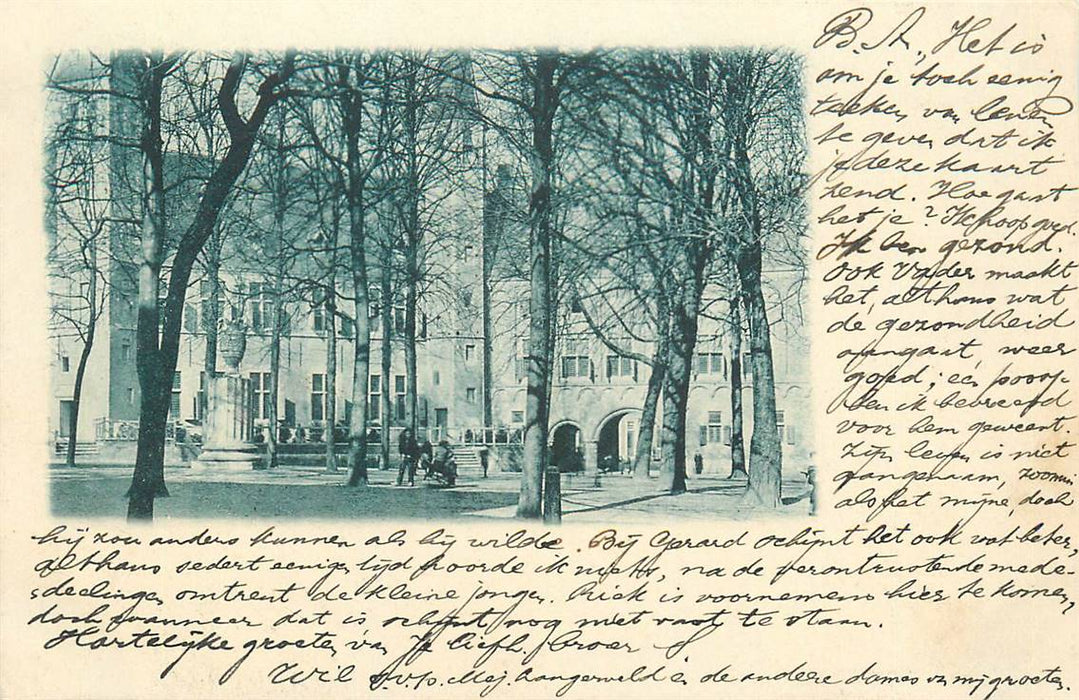 B. A., Het is
om je toch eenig
teeken van leven
te geven dat ik
je deze kaart
zend. Hoe gaat
het je? Ik hoop goed.
Ik ben gezond.
Ook Vader maakt
het, althans wat
de gezondheid
aangaat, weer
goed; een poos
ben ik bevreesd
voor hem geweest.
Zijn leven is niet
aangenaam, zoomin
als het mijne, doch
hij zou anders kunnen als hij wilde. Bij Gerard schijnt het ook wat beter,
althans sedert eenigen tijd hoorde ik niets, na de verontrustende mede-
deelingen omtrent de kleine jongen. Riek is voornemens hier te komen,
doch wanneer dat is schijnt nog niet vast te staan.
Hartelijke groeten van Je liefh. broer
Wil s.v.p. Mej. en de andere dames v. mij groeten.